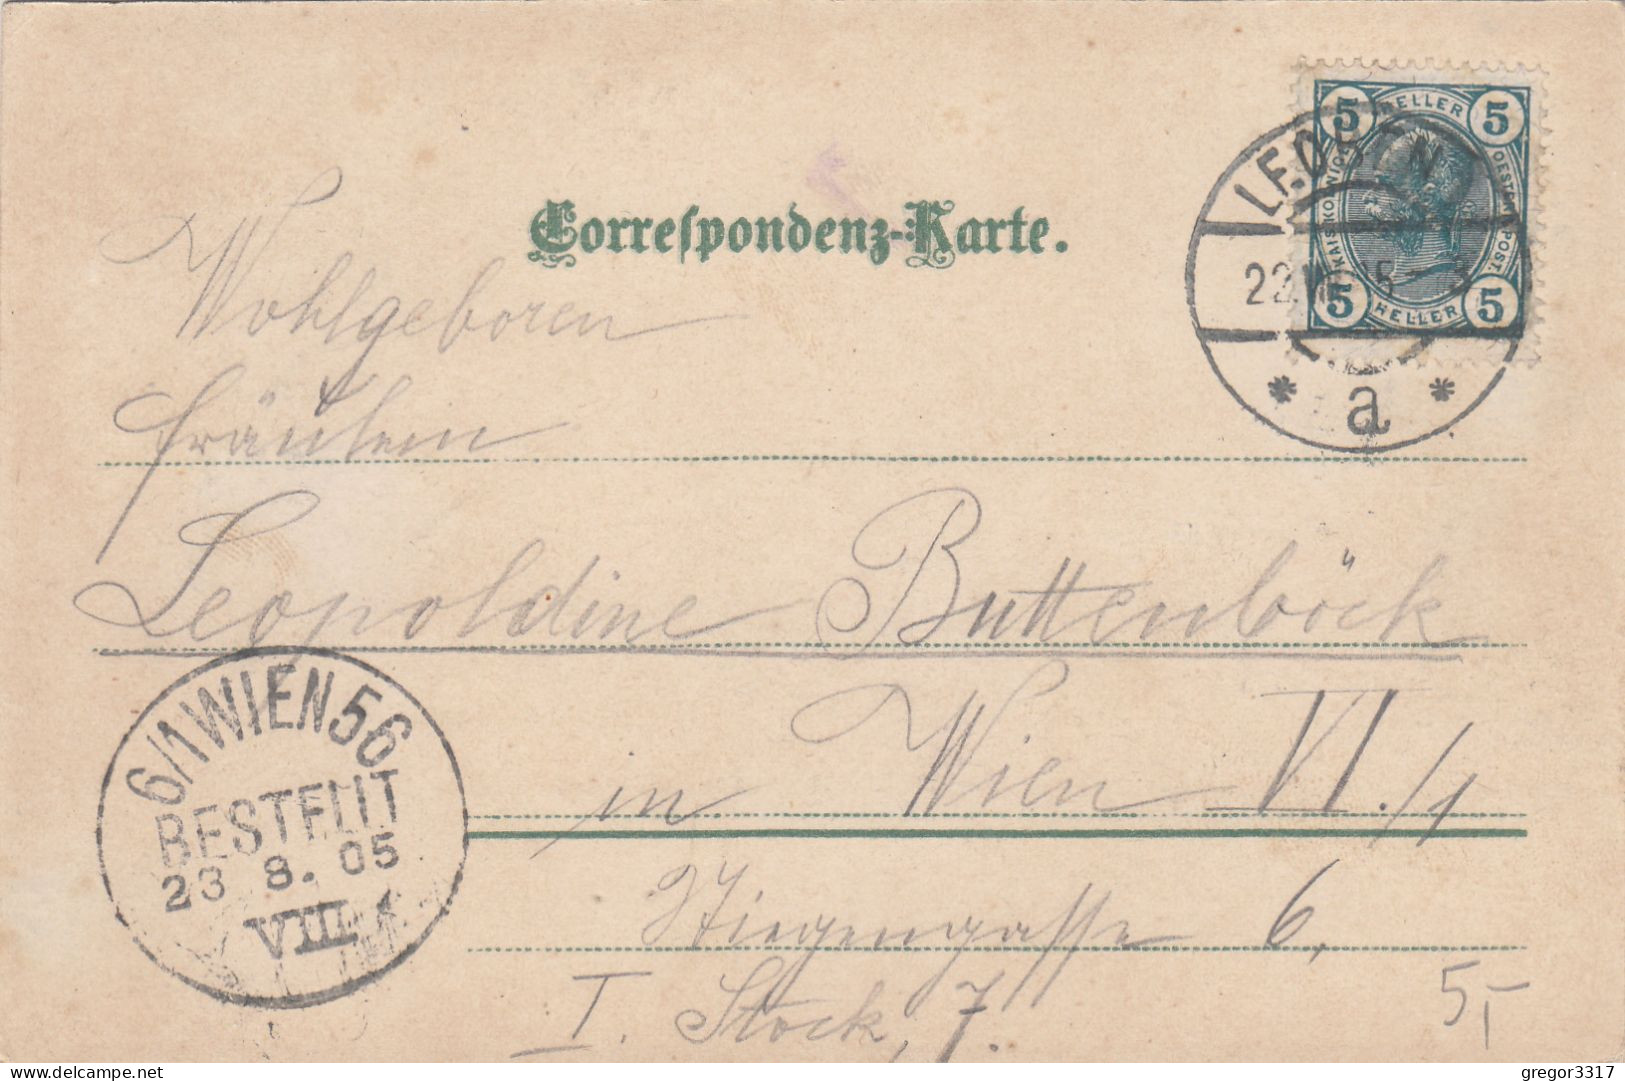 Correspondenz-Karte.
5 HELLER 5
KAIS. KÖNIGL. OESTERR. POST.
5 HELLER 5
LEOBEN
22. 5-3
* a *
Wohlgeboren
Fräulein
Leopoldine Buttenböck
in Wien VI./1
Stiegengasse 6,
I. Stock, 7.
5,-
6/1 WIEN 56
BESTELLT
23 8. 05
VIII
www.delcampe.net
gregor3317